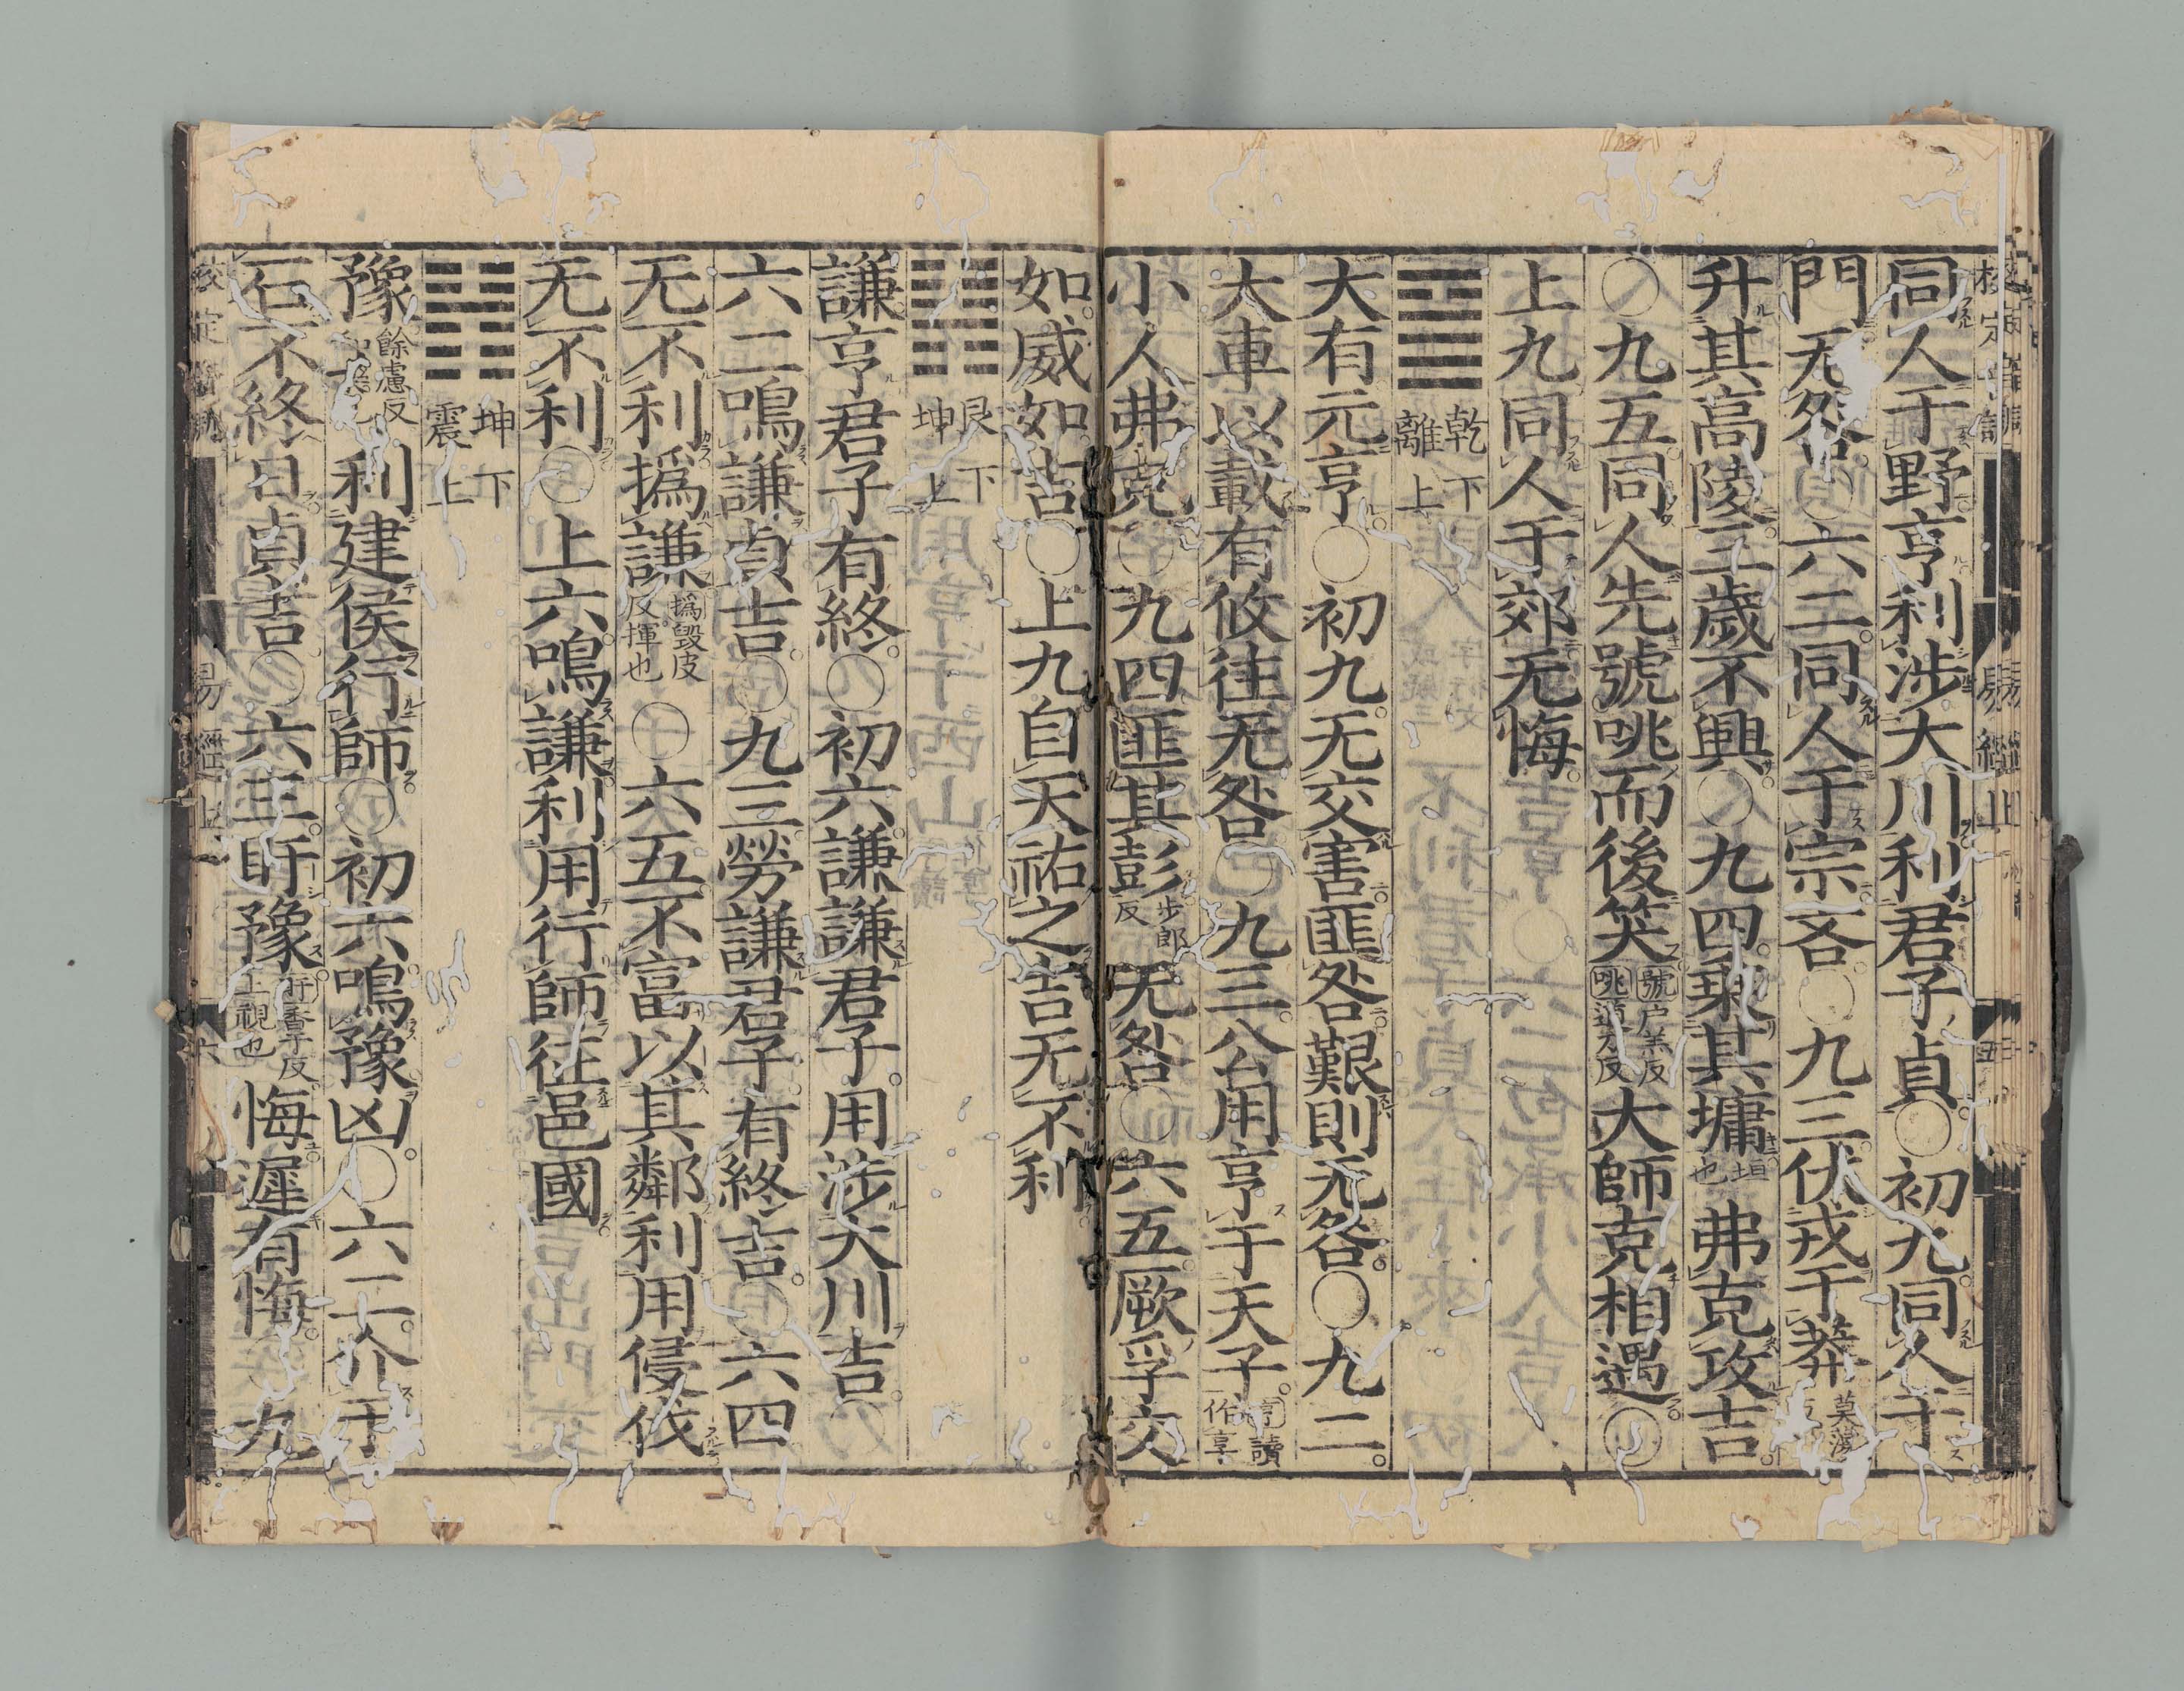 同人于野亨利涉大川利君子貞○初九同人于
門无咎○六二同人于宗吝○九三伏戎于莽莫蕩反
升其高陵三歲不興○九四乘其墉垣也弗克攻吉
○九五同人先號咷而後笑號戸羔反咷道刀反大師克相遇○
上九同人于郊无悔
乾下離上
大有元亨○初九无交害匪咎艱則无咎○九二
大車以載有攸往无咎○九三公用亨于天子亨讀作享
小人弗克○九四匪其彭步郎反无咎○六五厥孚交
如威如吉○上九自天祐之吉无不利
艮下坤上
謙亨君子有終○初六謙謙君子用涉大川吉○
六二鳴謙貞吉○九三勞謙君子有終吉○六四
无不利撝謙撝毀皮反揮也○六五不富以其鄰利用侵伐
无不利○上六鳴謙利用行師征邑國
坤下震上
豫餘慮反利建侯行師○初六鳴豫凶○六二介于
石不終日貞吉○六三盱豫盱香于反上視也悔遲有悔○九
易經上